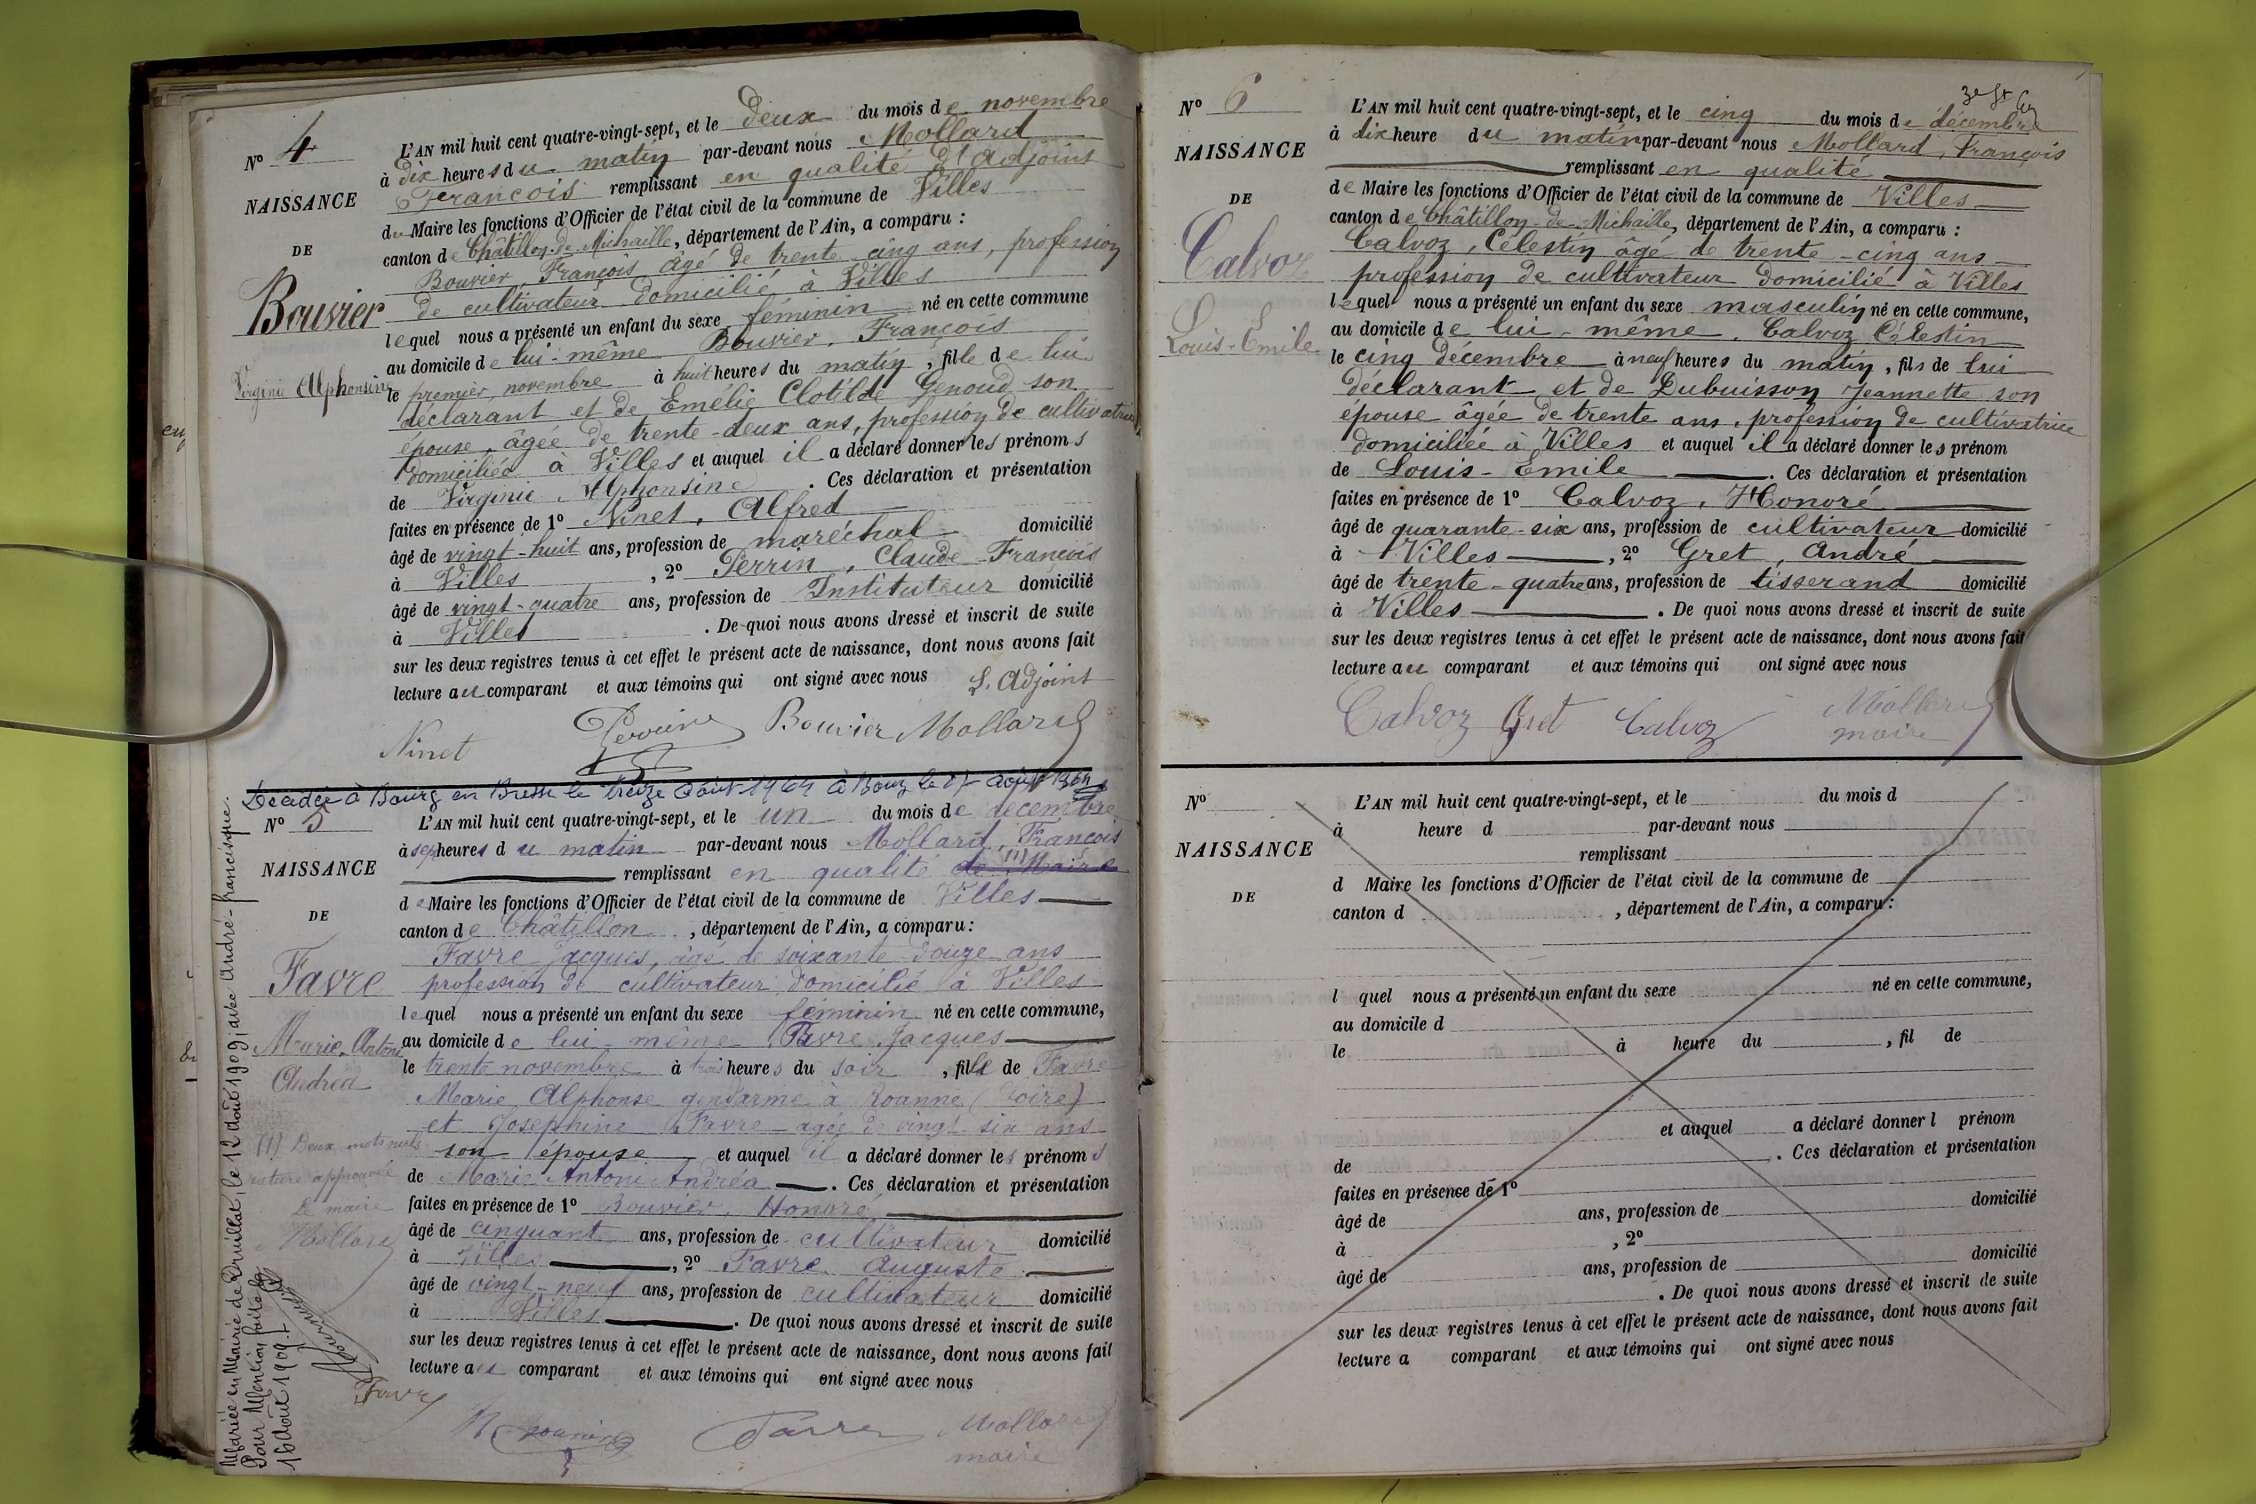 N° 4
NAISSANCE
DE
Bouvier
Virginie Alphonsine
L'AN mil huit cent quatre-vingt-sept, et le deux du mois de novembre
à dix heures du matin par-devant nous Mollard
François remplissant en qualité d'adjoint
du Maire les fonctions d'Officier de l'état civil de la commune de Villes
canton de Châtillon-de-Michaille, département de l'Ain, a comparu :
Bouvier, François âgé de trente-cinq ans, profession
de cultivateur domicilié à Villes
lequel nous a présenté un enfant du sexe féminin né en cette commune
au domicile de lui-même Bouvier, François
le premier novembre à huit heures du matin, fille de lui
déclarant et de Emélie Clotilde Genoud son
épouse, âgée de trente-deux ans, profession de cultivatrice
domiciliée à Villes et auquel il a déclaré donner les prénoms
de Virginie Alphonsine. Ces déclaration et présentation
faites en présence de 1° Ninet, Alfred
âgé de vingt-huit ans, profession de maréchal domicilié
à Villes, 2° Perrin, Claude-François
âgé de vingt-quatre ans, profession de Instituteur domicilié
à Villes. De quoi nous avons dressé et inscrit de suite
sur les deux registres tenus à cet effet le présent acte de naissance, dont nous avons fait
lecture au comparant et aux témoins qui ont signé avec nous
L'Adjoint
Ninet Perrin Bouvier Mollard
Décédée à Bourg en Bresse le treize août 1964 à Bourg le 17 août 1964
N° 5
NAISSANCE
DE
Favre
Marie-Antoni
Andréa
(1) Deux mots nuls
rature approuvée
Le maire
Mollard
Mariée en Mairie de Druillat, le 12 août 1909, avec André-francisque.
Pour Mention faite le
16 août 1909
L'AN mil huit cent quatre-vingt-sept, et le un du mois de décembre
à sept heures du matin par-devant nous Mollard, François
remplissant en qualité de Maire (1)
de Maire les fonctions d'Officier de l'état civil de la commune de Villes
canton de Châtillon, département de l'Ain, a comparu :
Favre Jacques, âgé de soixante-douze ans
profession de cultivateur domicilié à Villes
lequel nous a présenté un enfant du sexe féminin né en cette commune,
au domicile de lui-même Favre Jacques
le trente novembre à trois heures du soir, fille de Favre
Marie Alphonse gendarme à Roanne (Loire)
et Josephine Favre âgée de vingt-six ans
son épouse et auquel il a déclaré donner les prénoms
de Marie Antoni Andréa. Ces déclaration et présentation
faites en présence de 1° Bouvier, Honoré
âgé de cinquant ans, profession de cultivateur domicilié
à Villes, 2° Favre Auguste
âgé de vingt-neuf ans, profession de cultivateur domicilié
à Villes. De quoi nous avons dressé et inscrit de suite
sur les deux registres tenus à cet effet le présent acte de naissance, dont nous avons fait
lecture au comparant et aux témoins qui ont signé avec nous
Favre
Favre Mollard
maire
N° 6
NAISSANCE
DE
Calvoz
Louis-Emile
L'AN mil huit cent quatre-vingt-sept, et le cinq du mois de décembre
à dix heure du matin par-devant nous Mollard, François
remplissant en qualité
de Maire les fonctions d'Officier de l'état civil de la commune de Villes
canton de Châtillon-de-Michaille, département de l'Ain, a comparu :
Calvoz, Célestin âgé de trente-cinq ans
profession de cultivateur domicilié à Villes
lequel nous a présenté un enfant du sexe masculin né en cette commune,
au domicile de lui-même, Calvoz Célestin
le cinq décembre à neuf heures du matin, fils de lui
déclarant et de Dubuisson Jeannette son
épouse âgée de trente ans, profession de cultivatrice
domiciliée à Villes et auquel il a déclaré donner les prénom
de Louis-Emile. Ces déclaration et présentation
faites en présence de 1° Calvoz, Honoré
âgé de quarante-six ans, profession de cultivateur domicilié
à Villes, 2° Gret, André
âgé de trente-quatre ans, profession de tisserand domicilié
à Villes. De quoi nous avons dressé et inscrit de suite
sur les deux registres tenus à cet effet le présent acte de naissance, dont nous avons fait
lecture au comparant et aux témoins qui ont signé avec nous
Calvoz Gret Calvoz Mollard
maire
N°
NAISSANCE
DE
L'AN mil huit cent quatre-vingt-sept, et le du mois d
à heure d par-devant nous
remplissant
d Maire les fonctions d'Officier de l'état civil de la commune de
canton d , département de l'Ain, a comparu :
l quel nous a présenté un enfant du sexe né en cette commune,
au domicile d
le à heure du , fil de
et auquel a déclaré donner l prénom
de . Ces déclaration et présentation
faites en présence de 1°
âgé de ans, profession de domicilié
à , 2°
âgé de ans, profession de domicilié
. De quoi nous avons dressé et inscrit de suite
sur les deux registres tenus à cet effet le présent acte de naissance, dont nous avons fait
lecture a comparant et aux témoins qui ont signé avec nous